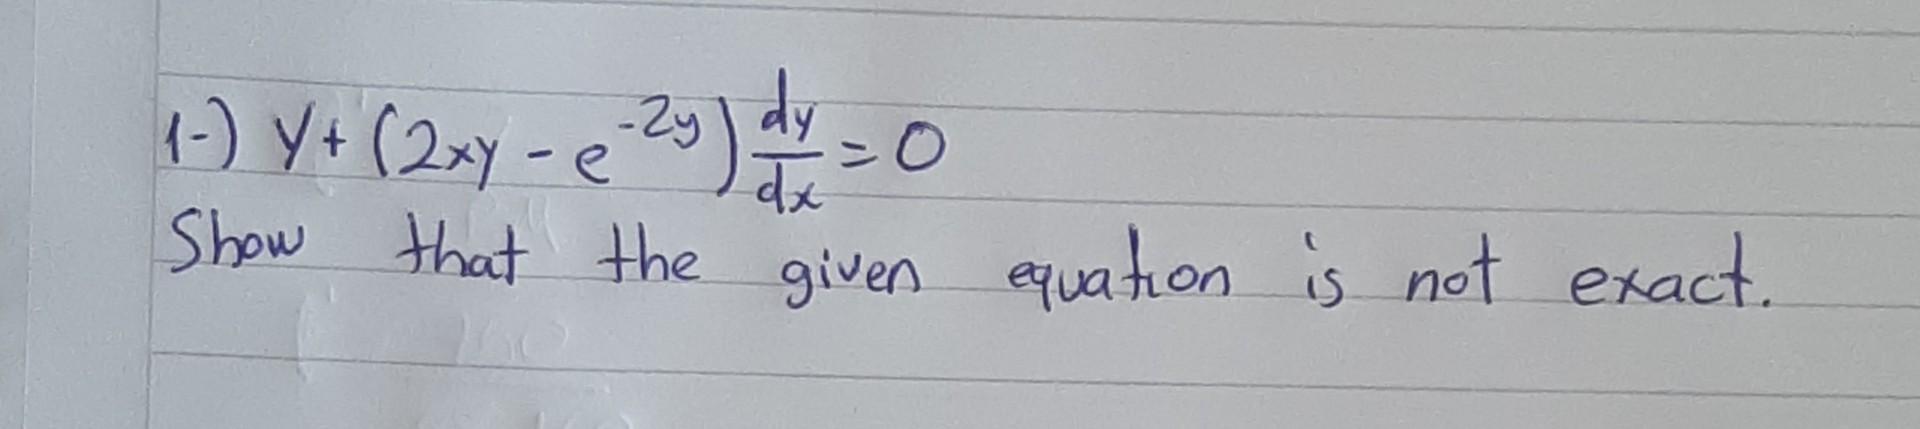 1-) y + (2xy - e^{-2y}) \frac{dy}{dx} = 0
Show that the given equation is not exact.